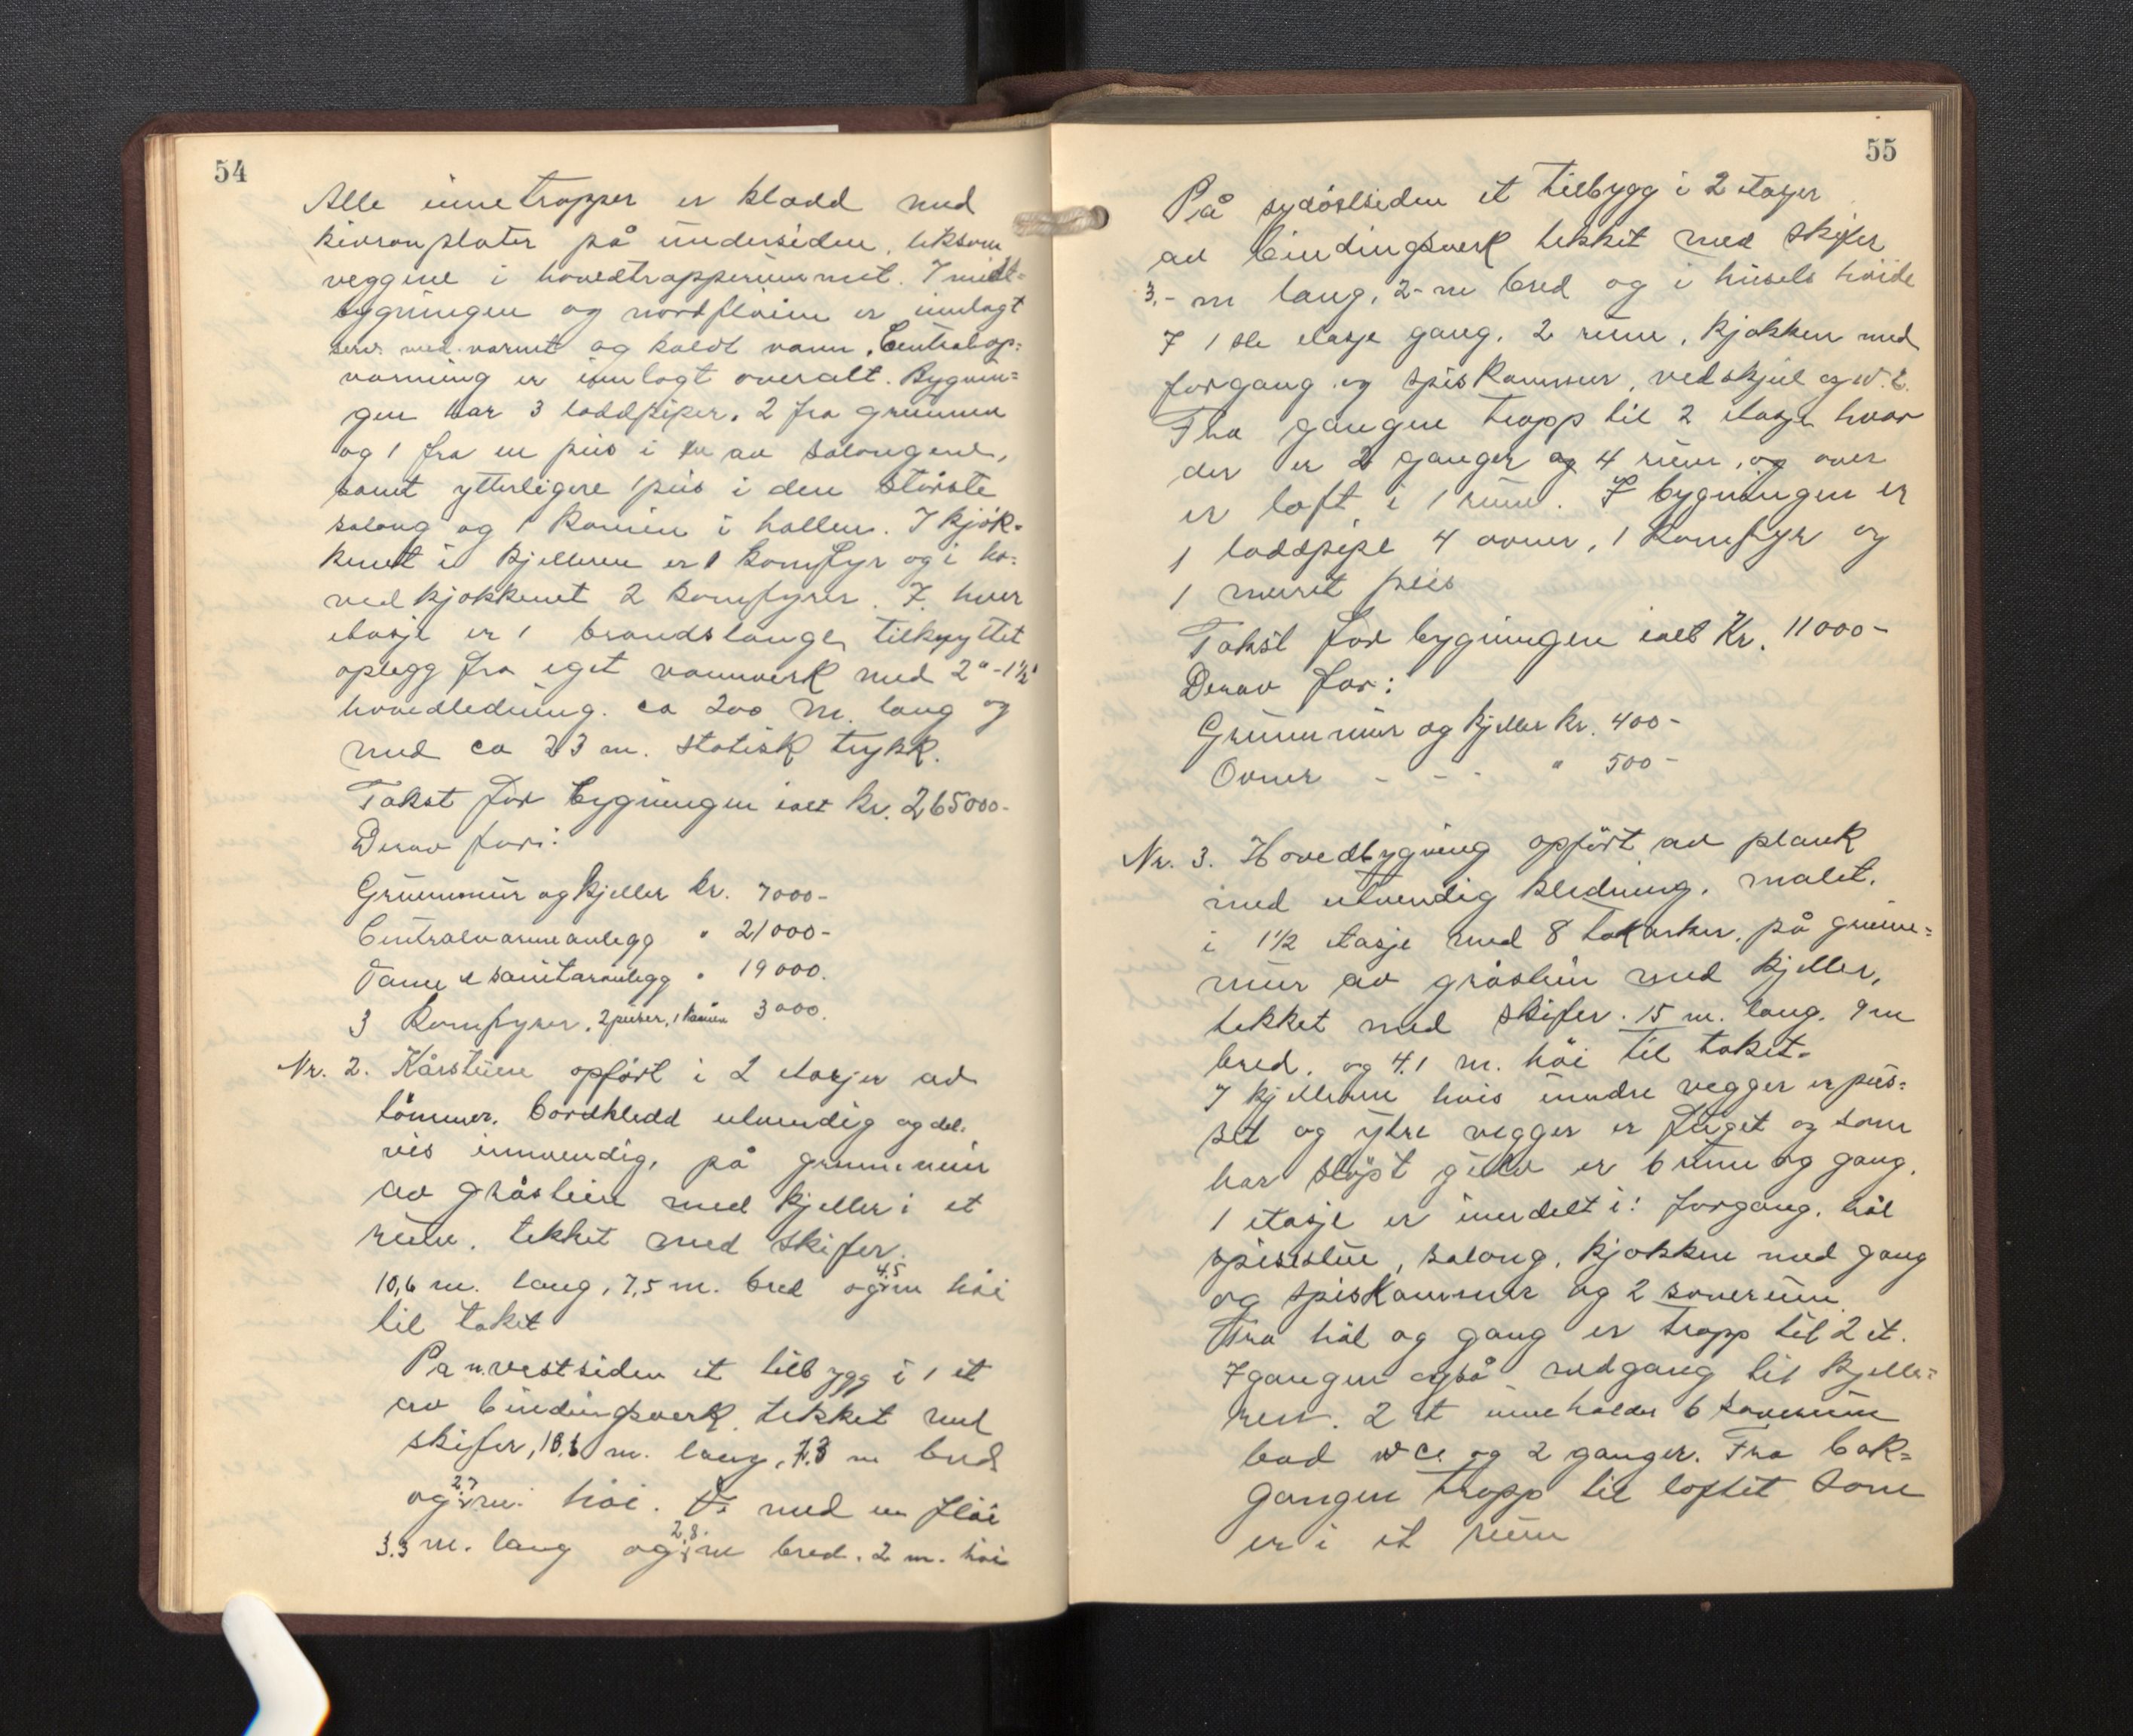 54
Alle innetrapper er kledd med
plater på undersiden, liksom
veggene i hovedtrapperummet. I midt=
bygningen og nordfløien er innlagt
serv. med varmt og koldt vann. Centralop=
varming er innlagt overalt. Bygnin=
gen har 3 loddpiper, 2 fra grunnen
og 1 fra en peis i en av salongene,
samt ytterligere 1 peis i den største
salong og 1 kamin i hallen. I kjøk=
kenet i kjelleren er 1 komfyr og i ho=
vedkjøkkenet 2 komfyrer. I hver
etasje er 1 brandslange, tilknyttet
oplegg fra eget vannverk med 2"-1½"
hovedledning. ca 200 m. lang og
med ca 23 m. statisk trykk.
Takst for bygningen ialt kr. 265000-
Derav for:
Grunnmur og kjeller kr. 7000-
Centralvarmeanlegg " 21000-
Vann & sanitæranlegg " 19000.
3 Komfyrer, 2 peiser, 1 kamin 3000.
Nr. 2. Kårstuen opført i 2 etasjer av
tømmer, bordkledd utvendig og del=
vis innvendig, på grunnmur
av gråstein med kjeller i et
rum, tekket med skifer.
10,6 m. lang, 7,5 m. bred og 4,5 m høi
til taket
På n.vestsiden et tilbygg i 1 et
av bindingsverk tekket med
skifer, m. lang, m bred
og 2,7 m. høi. med en fløi
3.3 m. lang og 2,8 m bred. 2 m. høi
55
På sydøstsiden et tilbygg i 2 etasjer
av bindingsverk tekket med skifer
3,- m lang, 2- m bred og i husets høide
I 1ste etasje gang, 2 rum, kjøkken med
forgang og spiskammer, vedskjul og W.C.
Fra gangen trapp til 2 etasje hvor
der er 2 ganger og 4 rum, og over
er loft i 1 rum. I bygningen er
1 loddpipe 4 ovner, 1 komfyr og
1 muret peis
Takst for bygningen ialt Kr. 11000-
Derav for:
Grunnmur og kjeller kr. 400-
Ovner - - - " 500-
Nr. 3. Hovedbygning opført av plank
med utvendig kledning, malet,
i 1½ etasje med 8 takarker, på grunn=
mur av gråstein med kjeller,
tekket med skifer. 15 m. lang, 9 m
bred, og 4,1 m. høi til taket.
I kjelleren hvis inndre vegger er pus=
set og ytre vegger er fuget og som
har støpt gulv er 6 rum og gang.
1 etasje er inndelt i: forgang, hål
spisestue, salong, kjøkken med gang
og spiskammer og 2 soverum.
Fra hål og gang er trapp til 2 et.
I gangen også nedgang til kjelle=
ren. 2 et inneholder 6 soverum
bad wc. og 2 ganger. Fra bak=
gangen trapp til loftet som
er i et rum